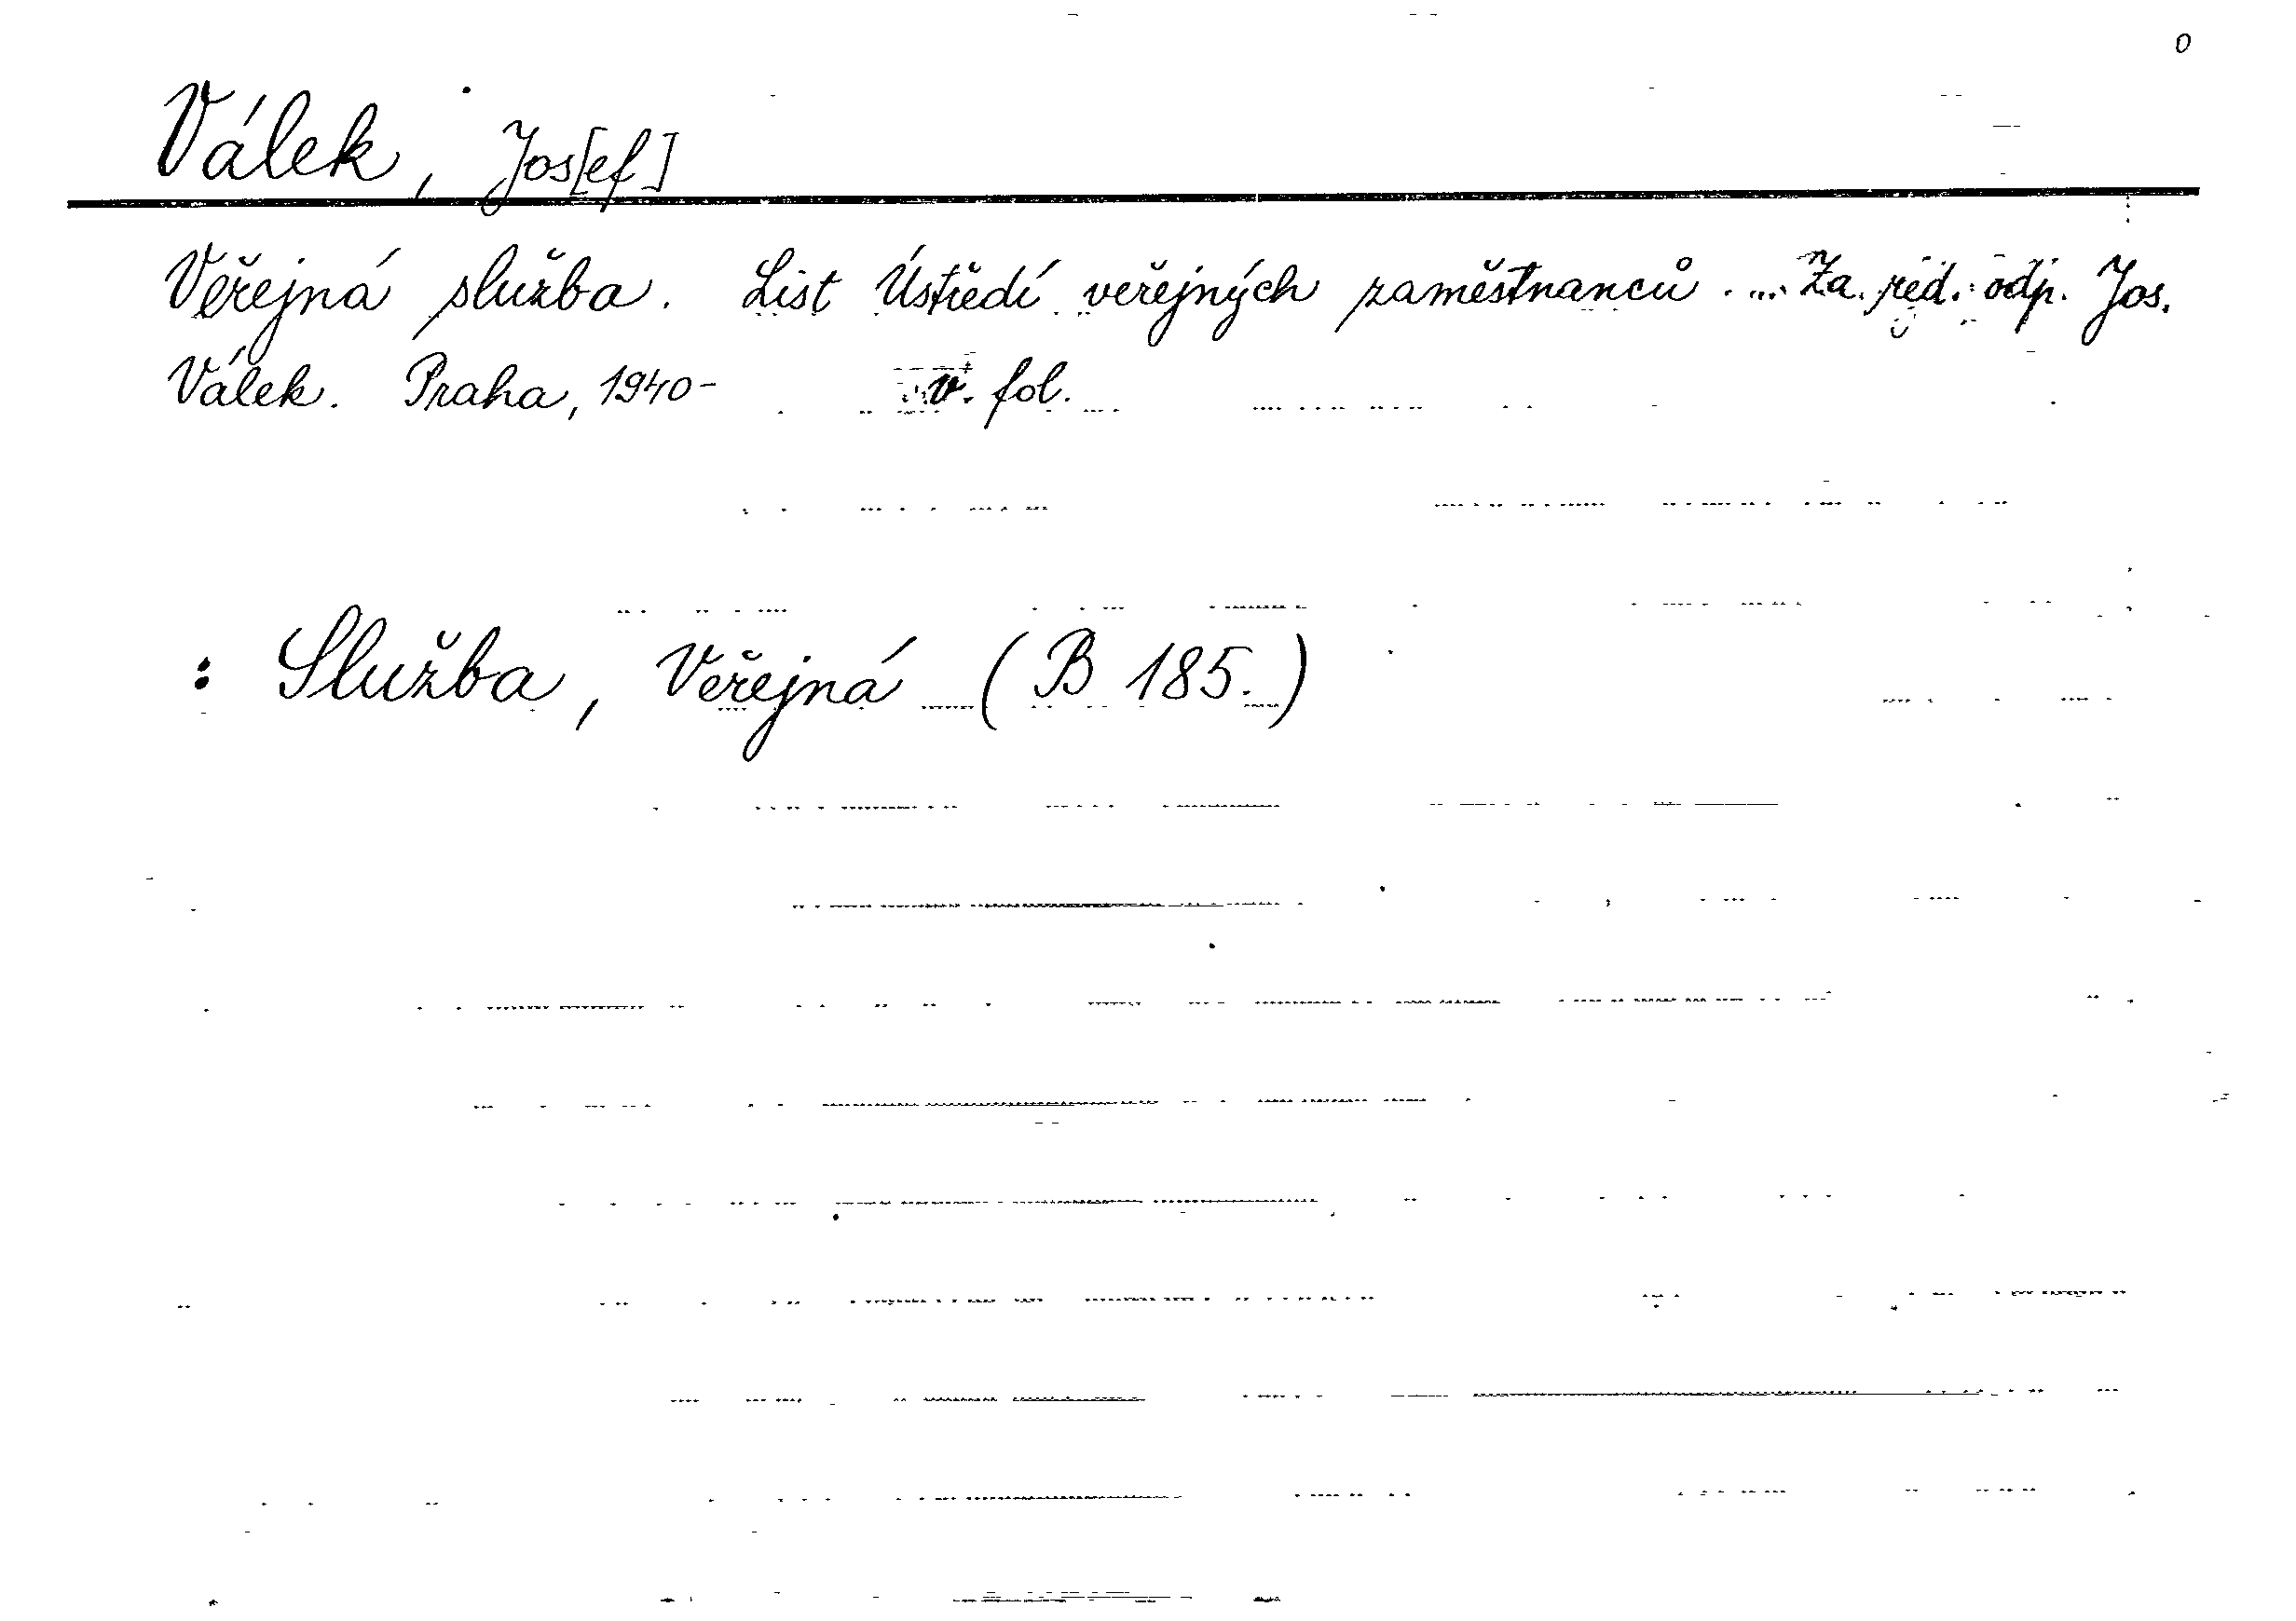 0
Válek, Jos[ef]
Veřejná služba. List Ústředí veřejných zaměstnanců. ... Za red. odp. Jos.
Válek. Praha, 1940- v. fol.
: Služba, Veřejná (B 185.)